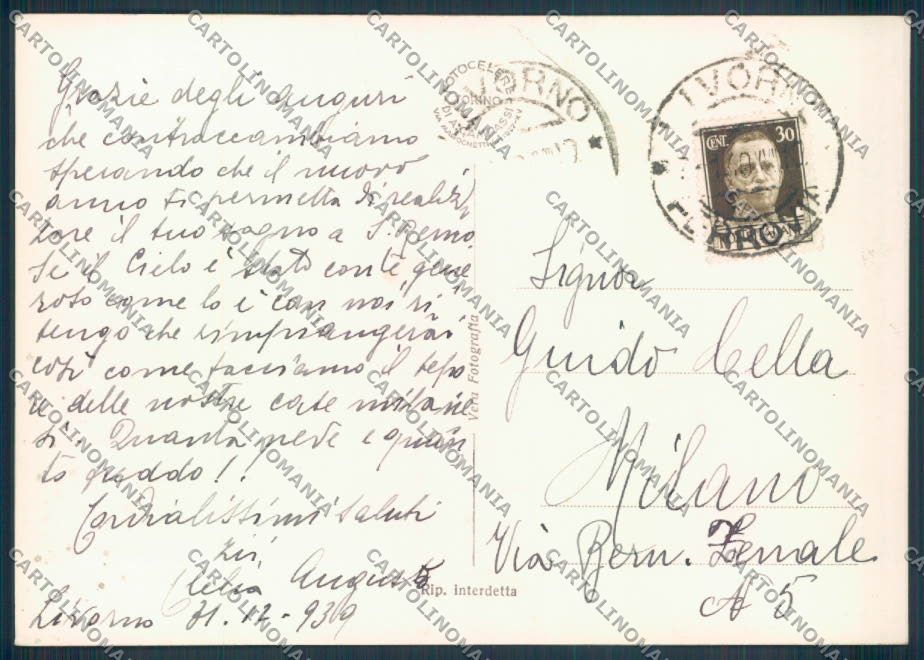 Grazie degli auguri
che contraccambiamo
sperando che il nuovo
anno ti permetta di realiz
zare il tuo sogno a S. Remo
Se il Cielo è stato con te gene
roso come lo è con noi, ri
tengo che rimpiangerai
così come facciamo il tepo
re delle nostre case milane
si. Quanta neve e quan
to freddo!!
Cordialissimi saluti
zii
Clelia Augusto
Livorno 31.12-939
Vera Fotografia
Rip. interdetta
LIVORNO
LIVORNO
FERROVIA
CENT. 30
POSTE ITALIANE
Signor
Guido Cella
Milano
Via Bern. Zenale
N 5
CARTOLINOMANIA